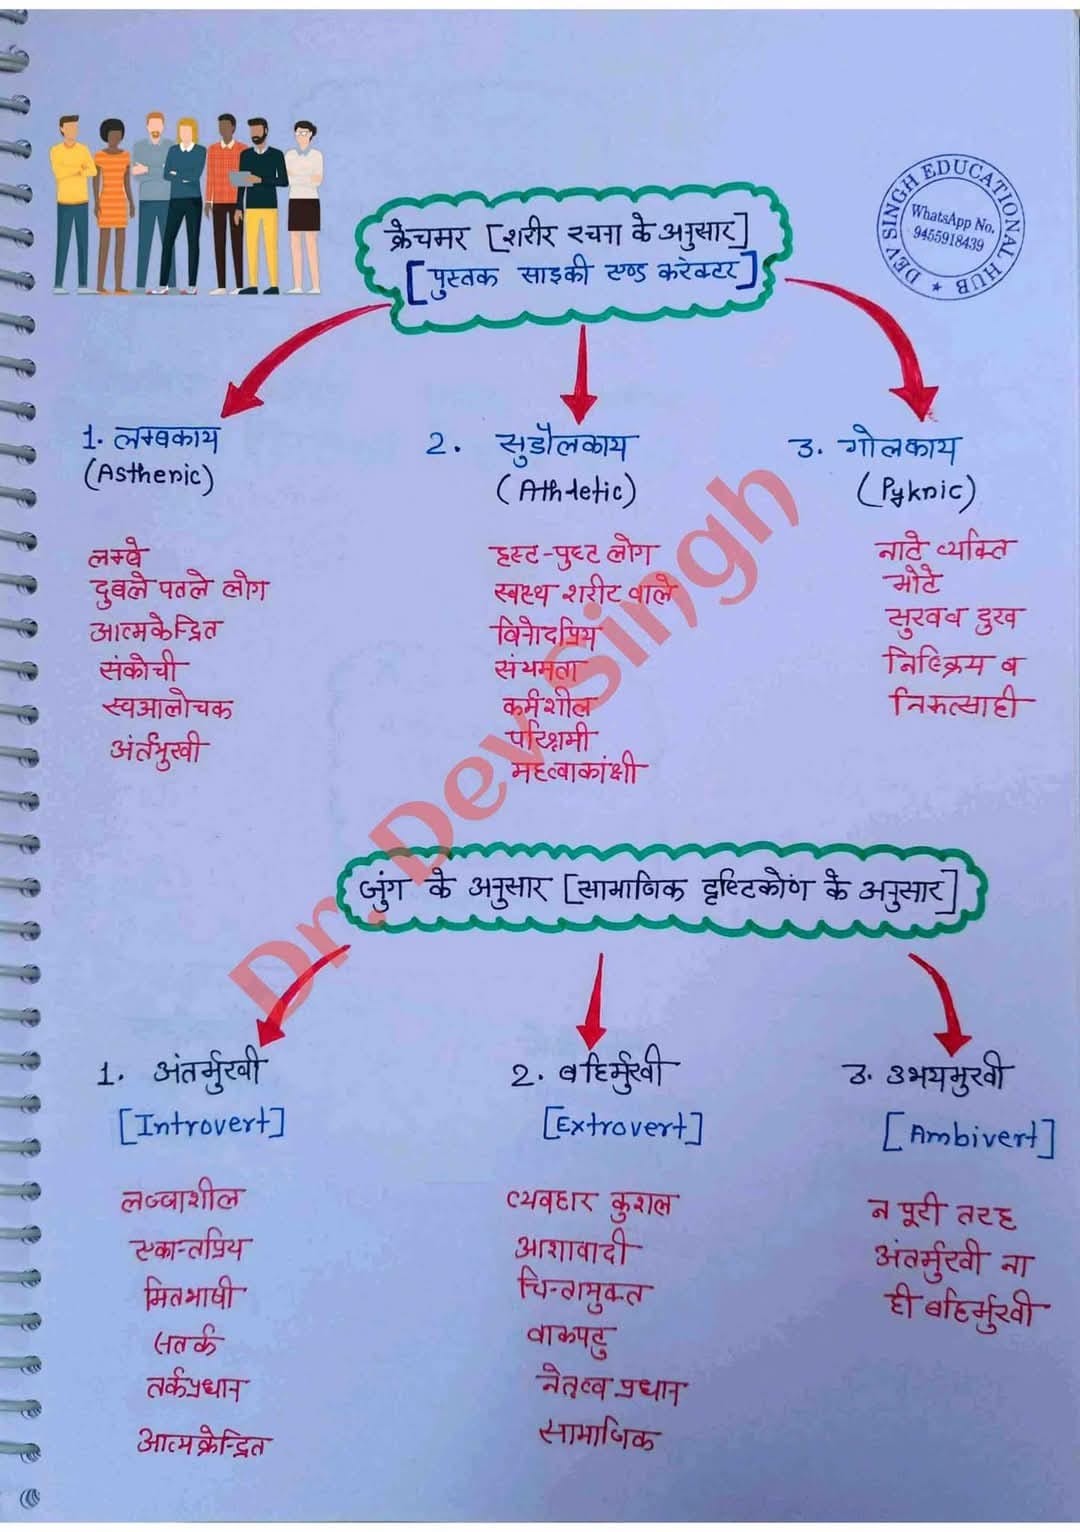 DEV SINGH EDUCATIONAL HUB
WhatsApp No.
9455918439
क्रेचमर [शरीर रचना के अनुसार]
[पुस्तक साइकी एण्ड करेक्टर]
1. लम्बकाय
(Asthenic)
2. सुडौलकाय
(Athletic)
3. गोलकाय
(Pyknic)
लम्बे
दुबले पतले लोग
आत्मकेन्द्रित
संकोची
स्वआलोचक
अंर्तमुखी
हस्ट-पुष्ट लोग
स्वस्थ शरीर वाले
विनोदप्रिय
संयमता
कर्मशील
परिश्रमी
महत्वाकांक्षी
नाटे व्यक्ति
मोटे
सुख व दुख
निष्क्रिय व
निरुत्साही
Dr. Dev Singh
जुंग के अनुसार [सामाजिक दृष्टिकोंण के अनुसार]
1. अंतर्मुखी
[Introvert]
2. बहिर्मुखी
[Extrovert]
3. उभयमुखी
[Ambivert]
लज्जाशील
एकान्तप्रिय
मितभाषी
सतर्क
तर्कप्रधान
आत्मकेन्द्रित
व्यवहार कुशल
आशावादी
चिन्तामुक्त
वाकपटु
नेतृत्व प्रधान
सामाजिक
न पूरी तरह
अंतर्मुखी ना
ही बहिर्मुखी